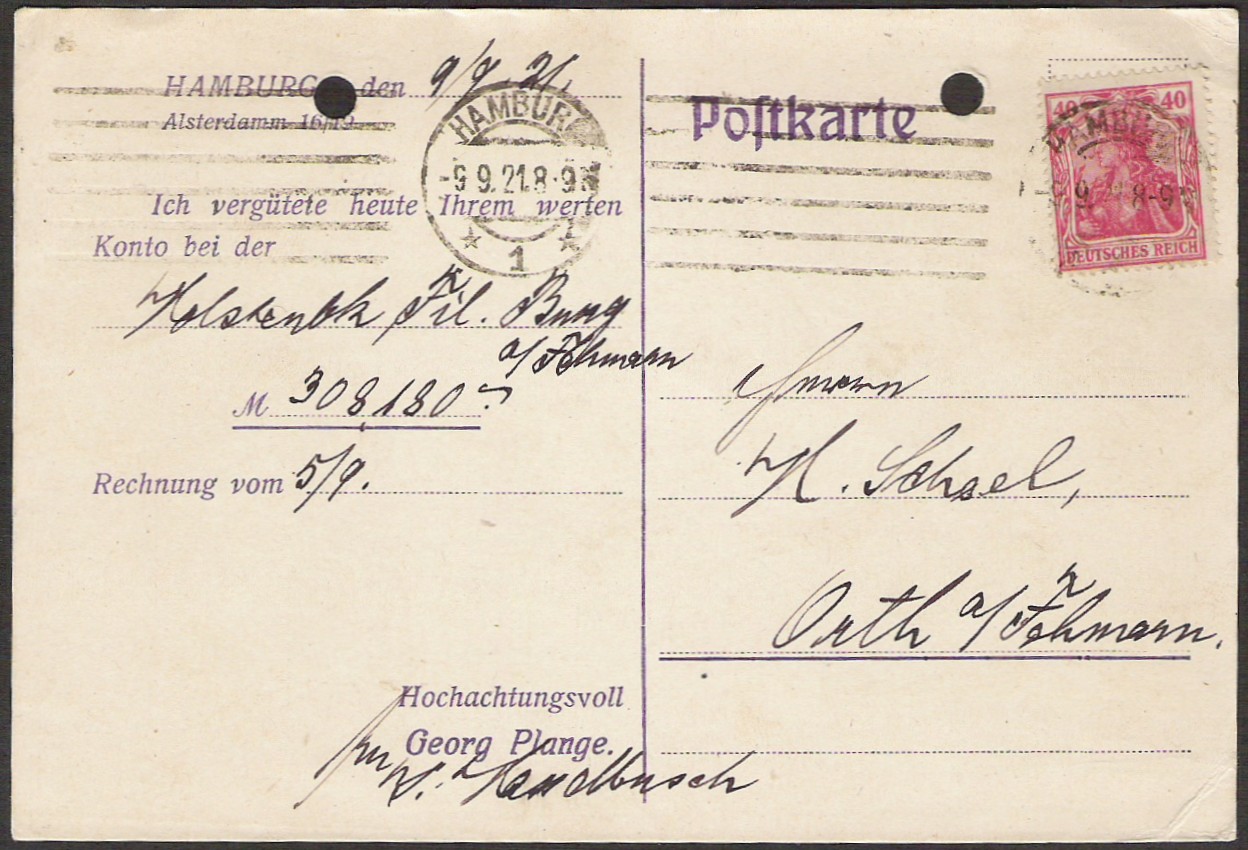 HAMBURG den 9/9 21.
Alsterdamm 16/19
HAMBURG
-9 9.21.8-9 N
1
Ich vergütete heute Ihrem werten
Konto bei der
Holstenbk Fil. Burg
a/Fehmarn
M 308,180.-
Rechnung vom 5/9.
Hochachtungsvoll
Georg Plange.
Postkarte
40 40
HAMBURG
9 8-9
DEUTSCHES REICH
H. Schael,
Orth a/Fehmarn.